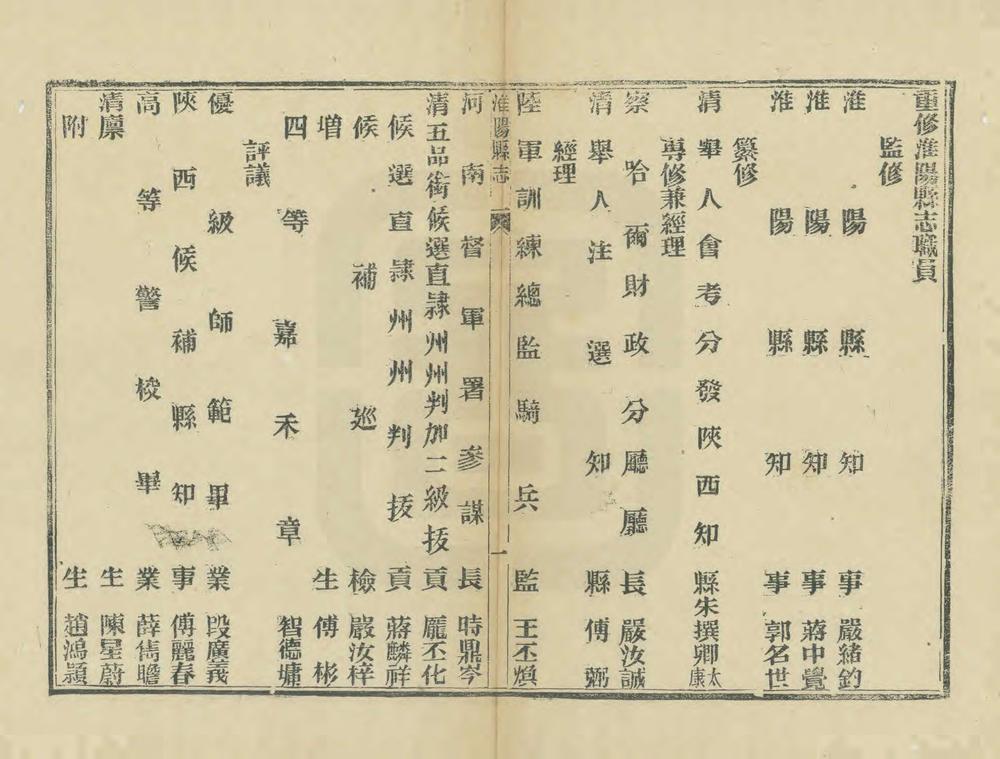 重修淮陽縣志職員
監修
淮陽縣知事嚴緒鈞
淮陽縣知事蔣中覺
淮陽縣知事郭名世
纂修
清舉人會考分發陝西知縣朱撰卿太康
專修兼經理
察哈爾財政分廳廳長嚴汝誠
清舉人注選知縣傅弼
經理
陸軍訓練總監騎兵監王丕煥
淮陽縣志
一
河南督軍署參謀長時鼎岑
清五品銜候選直隸州州判加二級拔貢龐丕化
候選直隸州州判拔貢蔣麟祥
候補巡檢嚴汝梓
增生傅彬
四等嘉禾章智德墉
評議
優級師範畢業段廣義
陝西候補縣知事傅麗春
高等警校畢業薛雋瞻
清廩生陳星蔚
附生趙鴻潁